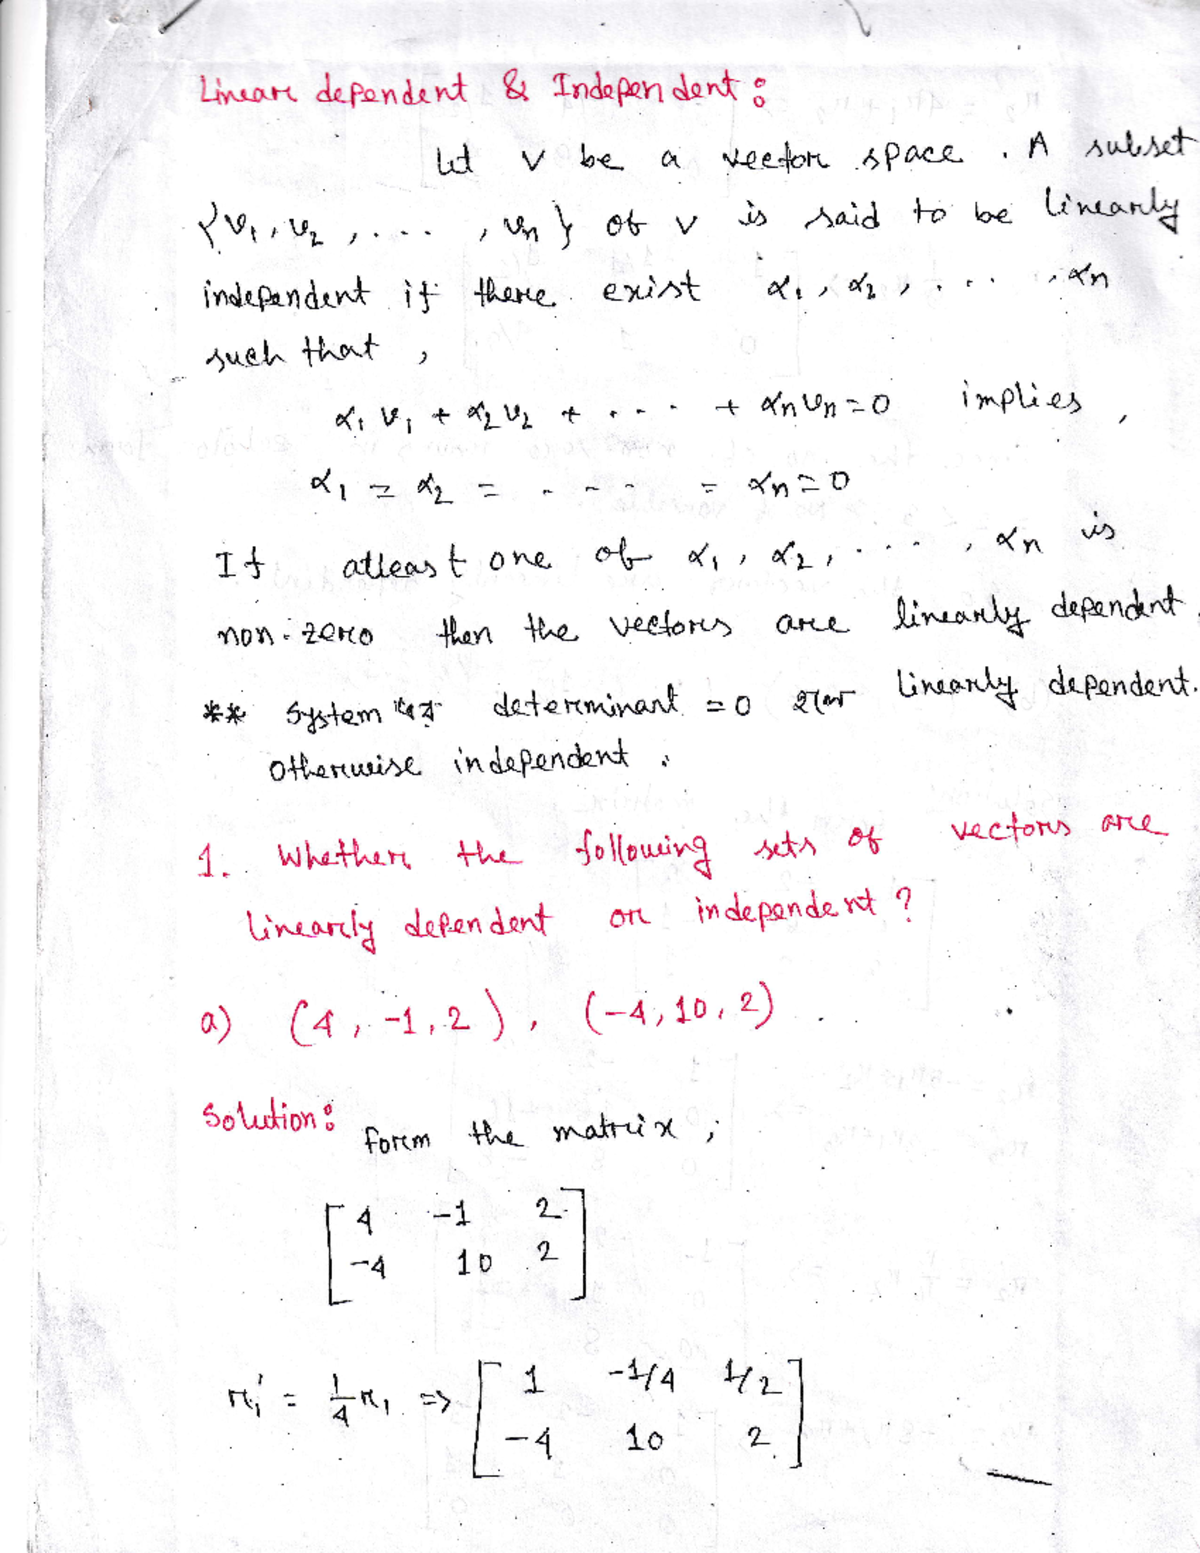 Linear dependent & Independent :
Let V be a vector space . A subset
{v₁, v₂, . . . . , vₙ} of V is said to be linearly
independent if there exist α₁, α₂, . . . . , αₙ
such that ,
α₁v₁ + α₂v₂ + . . . . + αₙvₙ = 0 implies ,
α₁ = α₂ = . . . . = αₙ = 0
If atleast one of α₁, α₂, . . . . , αₙ is
non-zero then the vectors are linearly dependent.
** System এর determinant = 0 হলে linearly dependent.
Otherwise independent .
1. Whether the following sets of vectors are
linearly dependent or independent ?
a) (4, -1, 2), (-4, 10, 2) .
Solution :
form the matrix ;
[ 4 -1 2 ]
[ -4 10 2 ]
r₁' = 1/4 r₁ => [ 1 -1/4 1/2 ]
[ -4 10 2 ]